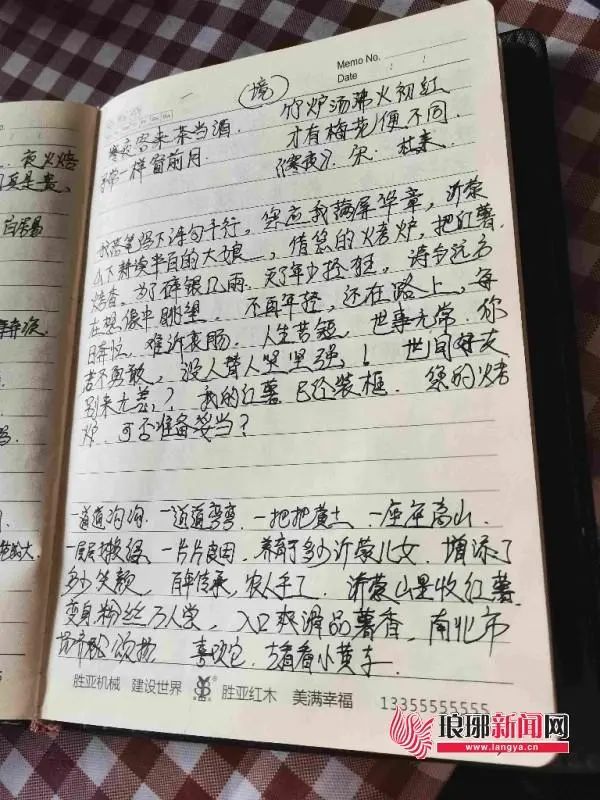 Memo No.
Date
(境)
寒夜客来茶当酒 竹炉汤沸火初红
寻常一样窗前月 才有梅花便不同
《寒夜》 宋 杜耒
我落笔写下诗句千行，您应我满屏华章，沂蒙
山下耕读半百的大娘，借您的烤炉，把红薯
烤香，为了碎银几两，灭了年少轻狂，
在想像中眺望。不再年轻，还在路上，每
日奔忙，难诉衷肠。人生苦短，世事无常，你
若不勇敢，没人替人坚强！世间好友
别来无恙？我的红薯已经装框，您的烤
炉，可否准备妥当？
一道道沟沟，一道道弯弯，一把把黄土，一座座高山，
一片片良田，养育了多少沂蒙儿女，增添了
多少笑颜，百年传承，农人手工，沂蒙山里收红薯，
变身粉丝万人学，入口爽滑品薯香，南北市
颂扬 喜欢它，请看看小黄车
夜火焙
胜亚机械 建设世界 胜亚红木 美满幸福 13355555555
琅琊新闻网
www.langya.cn